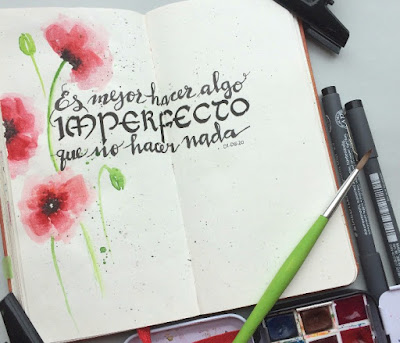 Es mejor hacer algo
IMPERFECTO
que no hacer nada